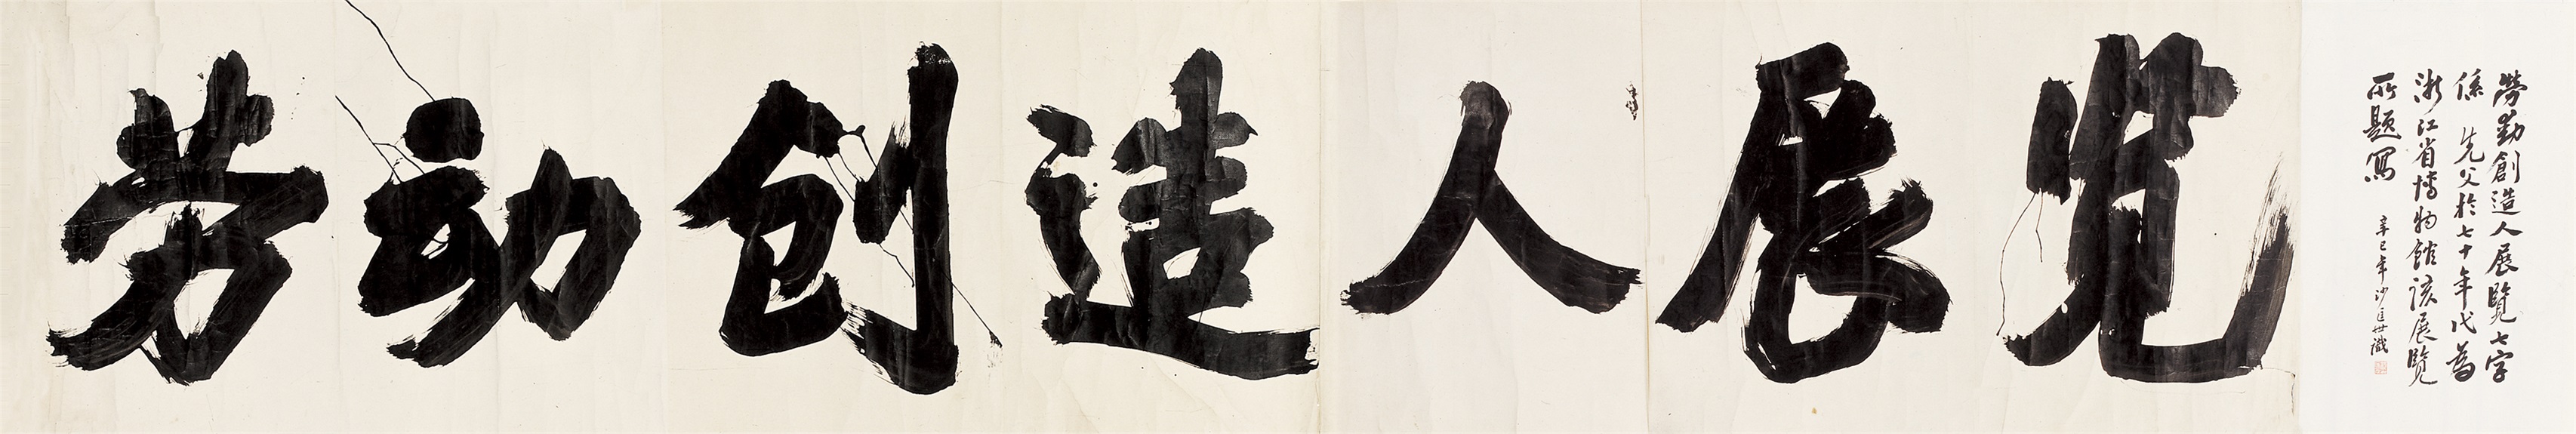 劳动创造人展览
勞動創造人展覽七字
係 先父於七十年代為
浙江省博物館該展覽
所題寫
辛巳年沙匡世識